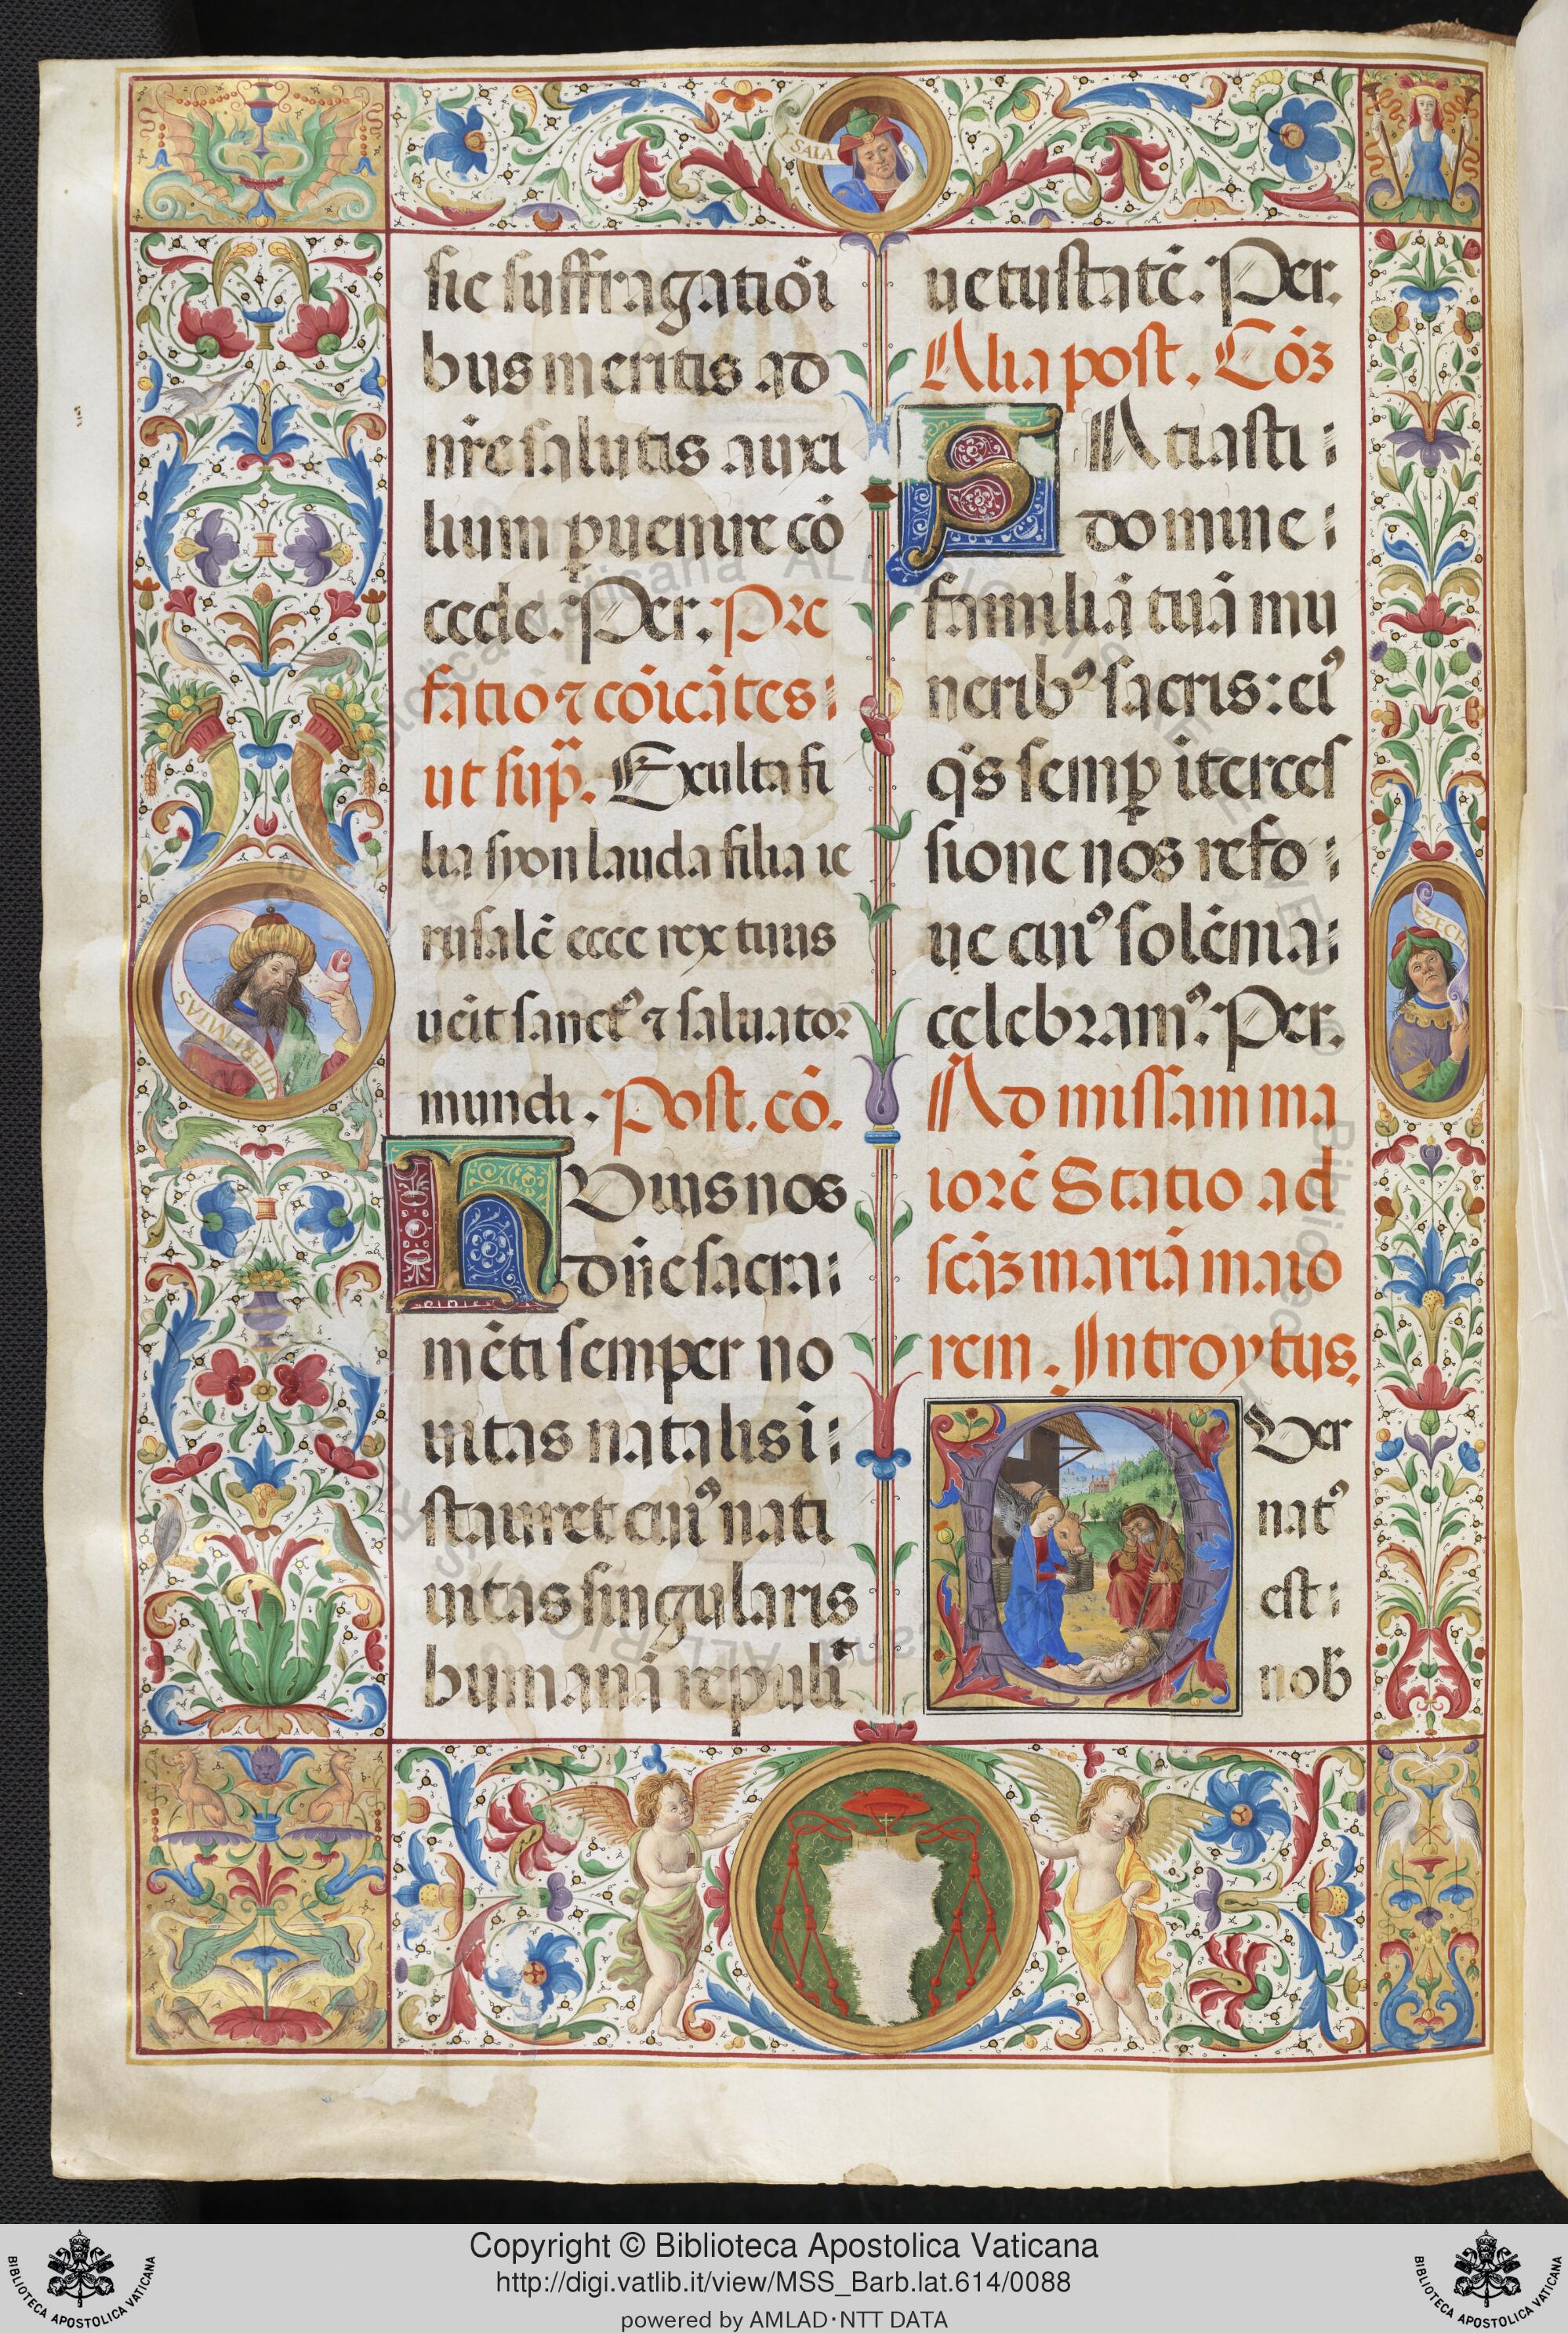 SAIA
EZECH
HIEREMIAS
sic suffragatiōi
bus meritis ad
nr̄e salutis auxi
lium ꝑuenire cō
cede. Per. Pre
fatio ⁊ cōicātes
ut sup̄. Exulta fi
lia syon lauda filia ie
rusalē ecce rex tuus
ueit sanctꝰ ⁊ saluator
mundi. Post. cō.
HVius nos
dn̄e sacra
mēti semper no
uitas natalis ī
stauret cuiꝰ nati
uitas singularis
humanā repulit
uetustatē. Per.
Alia post. Cōꝫ
SAtiasti
domine
familiā tuā mu
neribꝰ sacris: eiꝰ
q̄s semꝑ īterces
sione nos refo
ue cuiꝰ solēnia
celebramꝰ. Per.
Ad missam ma
iorē Statio ad
scāꝫ mariā maio
rem. Introytus.
PVer
natꝰ
est
nob̄
Copyright © Biblioteca Apostolica Vaticana
http://digi.vatlib.it/view/MSS_Barb.lat.614/0088
powered by AMLAD·NTT DATA
BIBLIOTECA APOSTOLICA VATICANA
BIBLIOTECA APOSTOLICA VATICANA